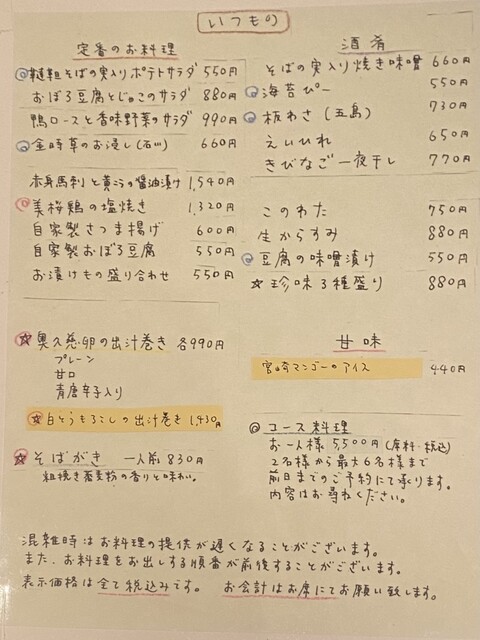 いつもの
定番のお料理
韃靼そばの実入りポテトサラダ 550円
おぼろ豆腐とじゃこのサラダ 880円
鴨ロースと香味野菜のサラダ 990円
金時草のお浸し(石川) 660円
赤身馬刺と黄ニラの醤油漬け 1,540円
美桜鶏の塩焼き 1,320円
自家製さつま揚げ 600円
自家製おぼろ豆腐 550円
お漬けもの盛り合わせ 550円
☆奥久慈卵の出汁巻き 各990円
プレーン
甘口
青唐辛子入り
☆白とうもろこしの出汁巻き 1,430円
☆そばがき 一人前 830円
粗挽き蕎麦粉の香りと味わい。
酒肴
そばの実入り焼き味噌 660円
海苔ぴー 550円
板わさ(五島) 730円
えいひれ 650円
きびなご一夜干し 770円
このわた 750円
生からすみ 880円
豆腐の味噌漬け 550円
☆珍味3種盛り 880円
甘味
宮崎マンゴーのアイス 440円
◎コース料理
お一人様 5,500円(席料・税込)
2名様から最大6名様まで
前日までのご予約にて承ります。
内容はお尋ねください。
混雑時はお料理の提供が遅くなることがございます。
また、お料理をお出しする順番が前後することがございます。
表示価格は全て税込みです。 お会計はお席にてお願い致します。